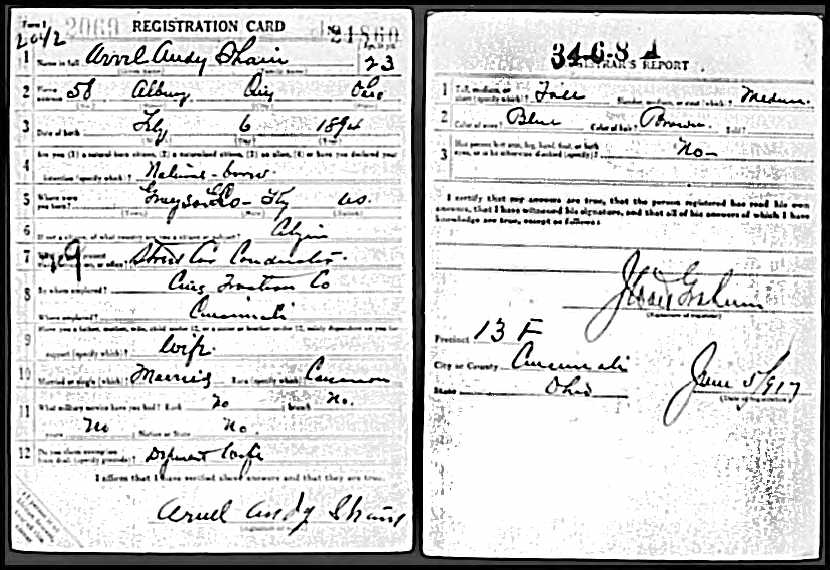 Form 1 2069 REGISTRATION CARD No. 21860
Age, in yrs.
1 Name in full Andy Shain 23
(Given name) (Family name)
2 Home address 56 Albany Ohio
3 Date of birth 6 1894
4 Are you (1) a natural-born citizen, (2) a naturalized citizen, (3) an alien, (4) or have you declared your
intention (specify which)? Natural-born
5 Where were you born? Grayson Co - Ky US
(Town) (State) (Nation)
6 If not a citizen, of what country are you a citizen or subject? Citizen
7 Street Car Conductor.
8 By whom employed? Traction Co
Where employed? Cincinnati
9 Have you a father, mother, wife, child under 12, or a sister or brother under 12, solely dependent on you for
support (specify which)? Wife.
10 Married or single (which)? Married Race (specify which)? Caucasian
11 What military service have you had? Rank No branch No.
years No Nation or State No.
12 Do you claim exemption from draft (specify grounds)? Dependent Wife
I affirm that I have verified above answers and that they are true.
Andy Shain
34-6-8 A
REGISTRAR'S REPORT
1 Tall, medium, or short (specify which)? Tall Slender, medium, or stout (which)? Medium.
2 Color of eyes? Blue Color of hair? Brown. Bald?
3 Has person lost arm, leg, hand, foot, or both
eyes, or is he otherwise disabled (specify)? No-
I certify that my answers are true, that the person registered has read his own
answers, that I have witnessed his signature, and that all of his answers of which I have
knowledge are true, except as follows:
(Signature of registrar)
Precinct 13 F
City or County Cincinnati
State Ohio
June 5/917
(Date of registration)